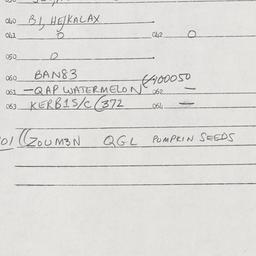 040 BJ, HEJKALAX
041 0 042 0
050 0
060 BAN83
061 -QAP WATERMELON (400050 062 -
063 KERB1S/C (372 064 -
01 ((ZOUM3N QGL PUMPKIN SEEDS